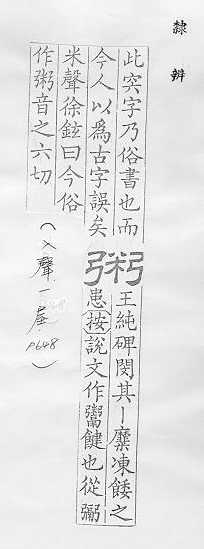 隸辨
此突字乃俗書也而
今人以爲古字誤矣
粥
王純碑閔其丨糜凍餒之
患按說文作鬻䭈也從䰜
米聲徐鉉曰今俗
作粥音之六切
(入聲一屋 p.648)